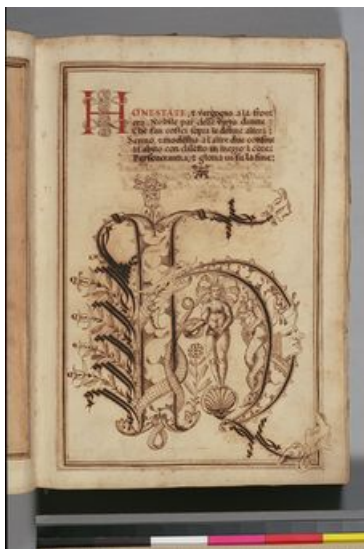 HONESTATE, & vergogna a la fron
era. Nobile par delle virtu donna:
Che fan costei sopra le donne altera:
Senno, & modestia a l'altre due confine
Habito con diletto in mezzo il core:
Perseverantia, & gloria in su la fine: